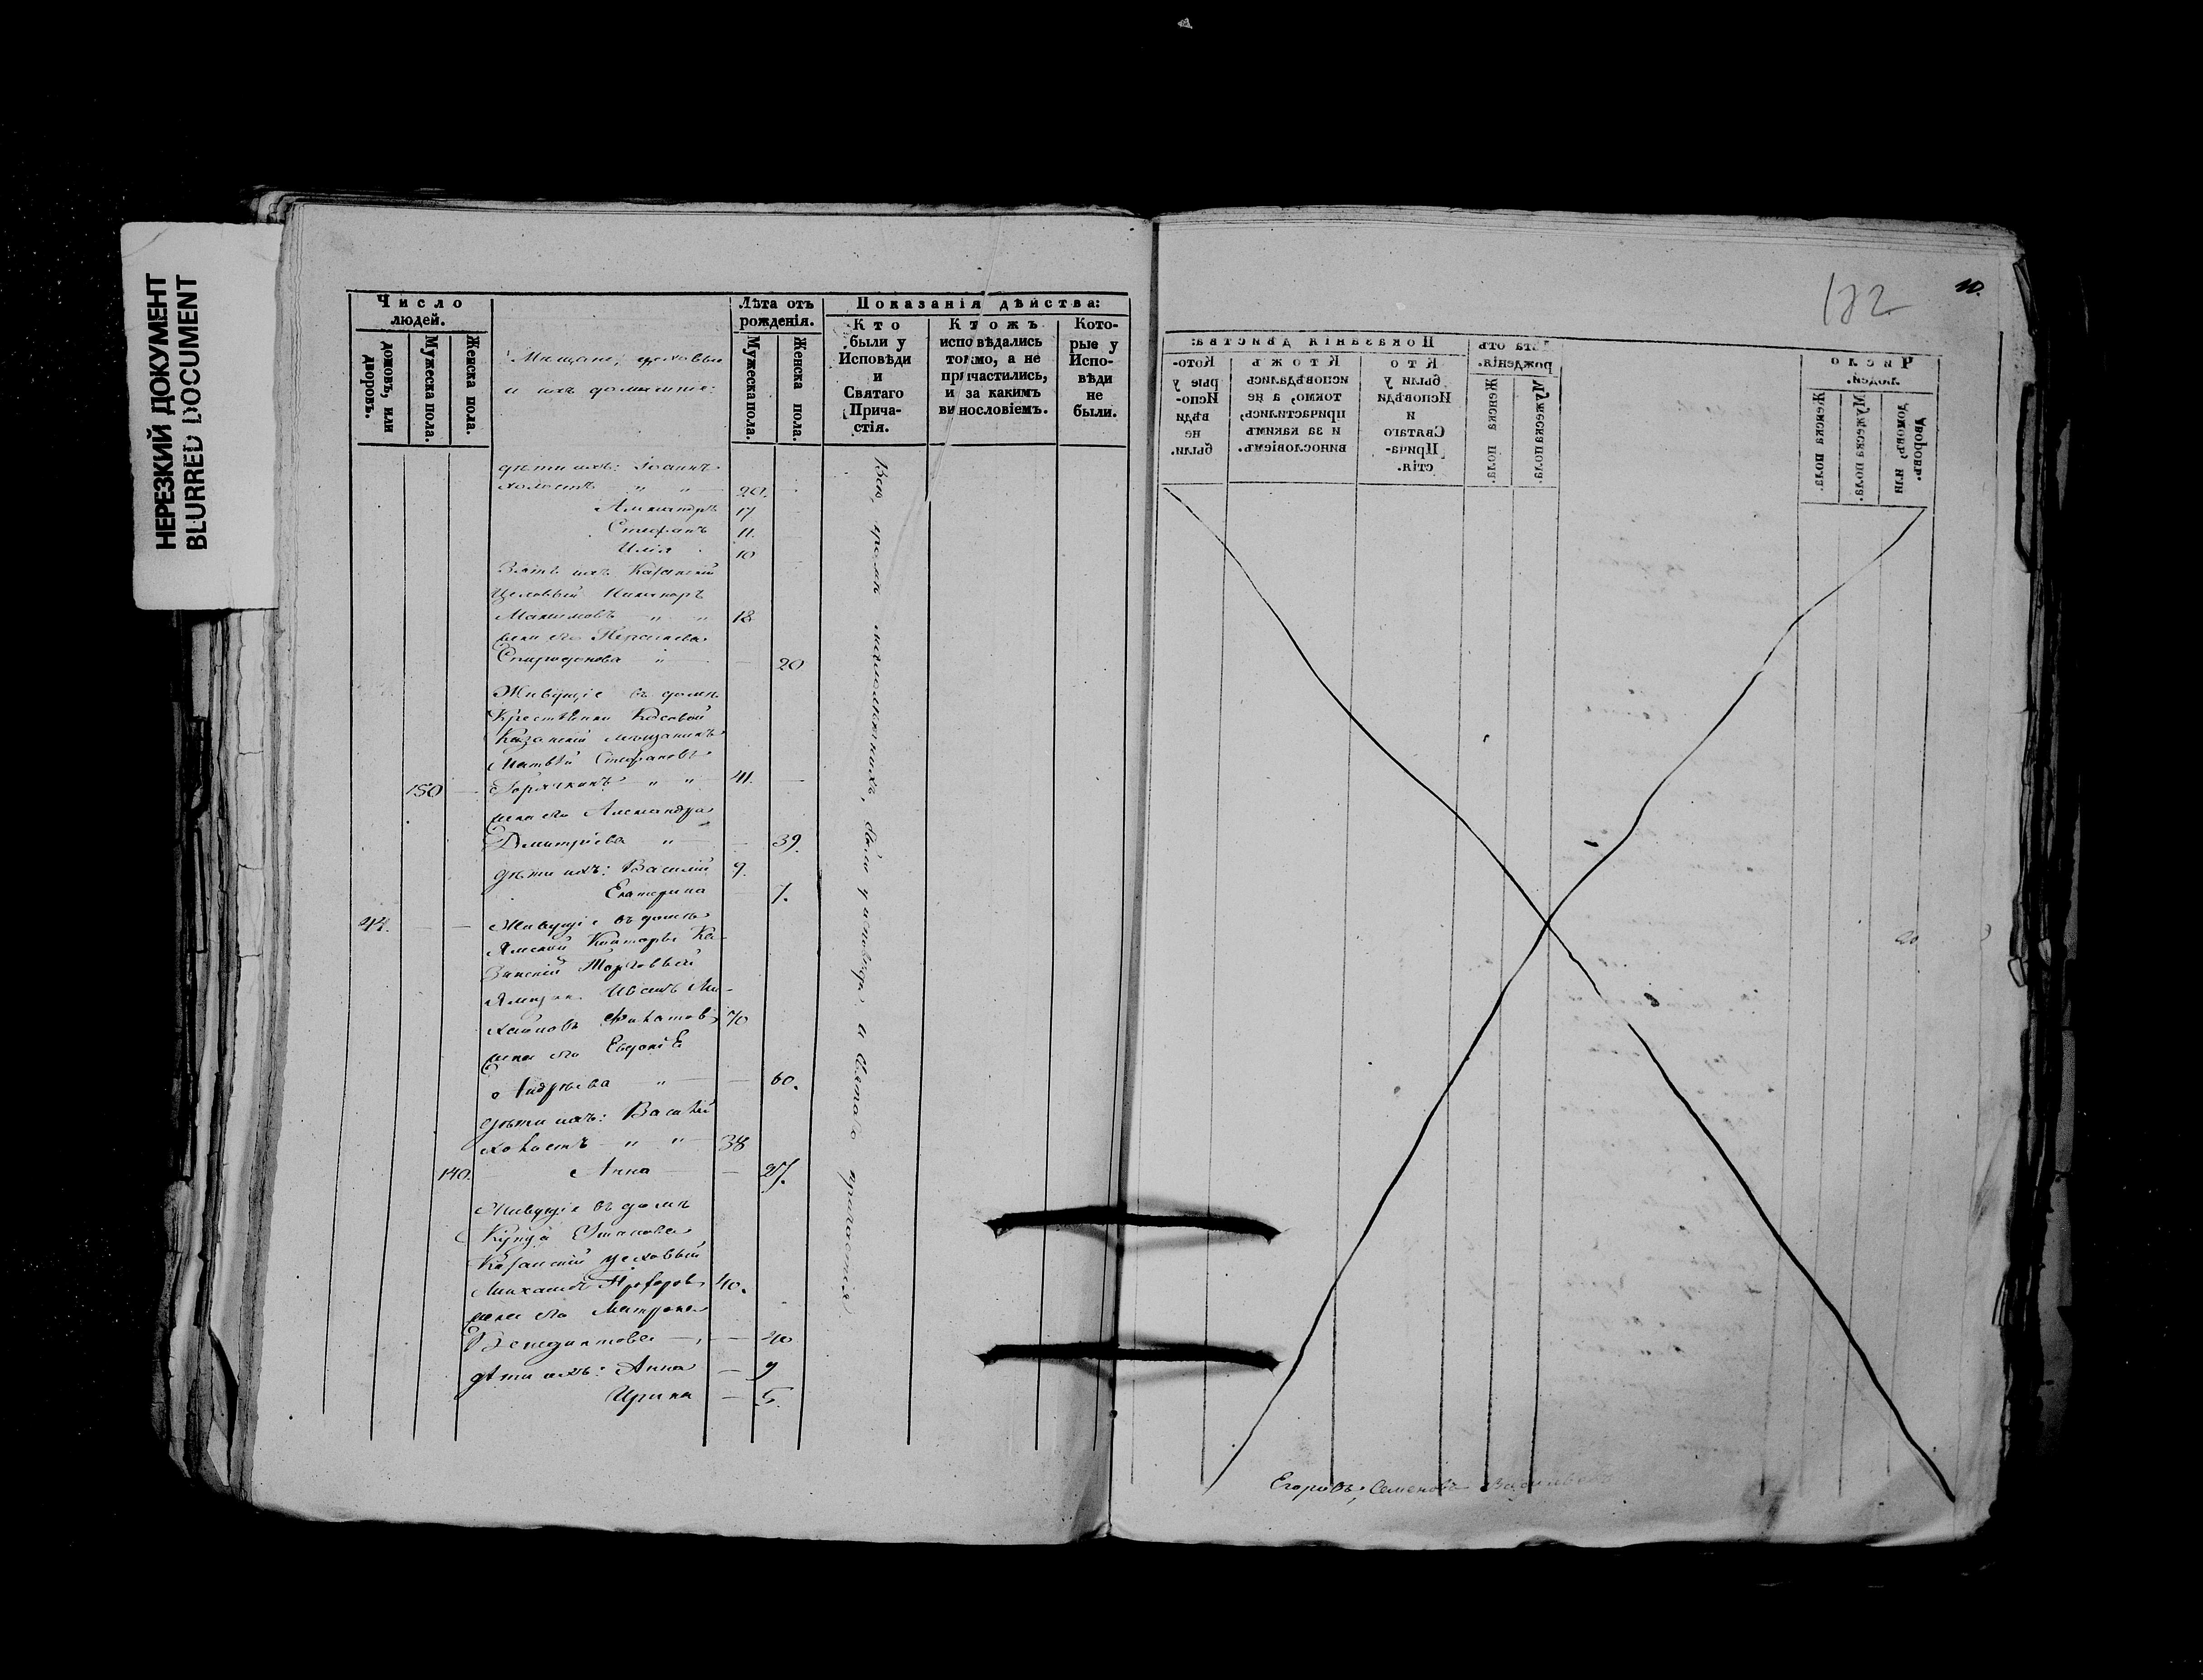 НЕРЕЗКИЙ ДОКУМЕНТ
BLURRED DOCUMENT
Число людей.
домовъ, или дворовъ.
Мужеска пола.
Женска пола.
Мещане, цеховые
и ихъ домашніе:
Лѣта отъ рожденія.
Мужеска пола.
Женска пола.
Показанія дѣйства:
Кто были у Исповѣди и Святаго Причастія.
Ктожъ исповѣдались токмо, а не причастились, и за какимъ винословіемъ.
Которые у Исповѣди не были.
дѣти ихъ: Іоаннъ
холостъ " " 20.
Александръ 17
Стефанъ 11.
Илія 10
Зять ихъ Казанскій
Цеховый Никаноръ
Максимовъ — " 18
жена его
Спиридонова " — 20
Живущіе въ домѣ
Казанскій мещанинъ
Матвѣй Стефановъ
150 — Горячкинъ " " 41. —
жена его Александра
Дмитріева " — 39.
дѣти ихъ: Василій 9.
Екатерина 7.
44. — — Живущіе въ домѣ
Ямской Конторы Ка-
занскій Торговый
Иванъ Ми-
хайловъ 70
жена его Евдокія
Андреева " — 60.
дѣти ихъ: Василій
холостъ " " 38
140. Анна — — 27.
Живущіе въ домѣ
Купца
Казанскій цеховый
Михаилъ 40.
жена его Матрона
Венедиктова — — 40
дѣти ихъ: Анна — 9
Ирина — 5.
Всѣ, кромѣ малолѣтнихъ, были у исповѣди и Святаго причастія
182
10.
Показанія дѣйства:
Которые у Исповѣди не были.
Ктожъ исповѣдались токмо, а не причастились, и за какимъ винословіемъ.
Кто были у Исповѣди и Святаго Причастія.
Лѣта отъ рожденія.
Женска пола.
Мужеска пола.
Число людей.
Женска пола.
Мужеска пола.
домовъ, или дворовъ.
Егоровъ, Семеновъ